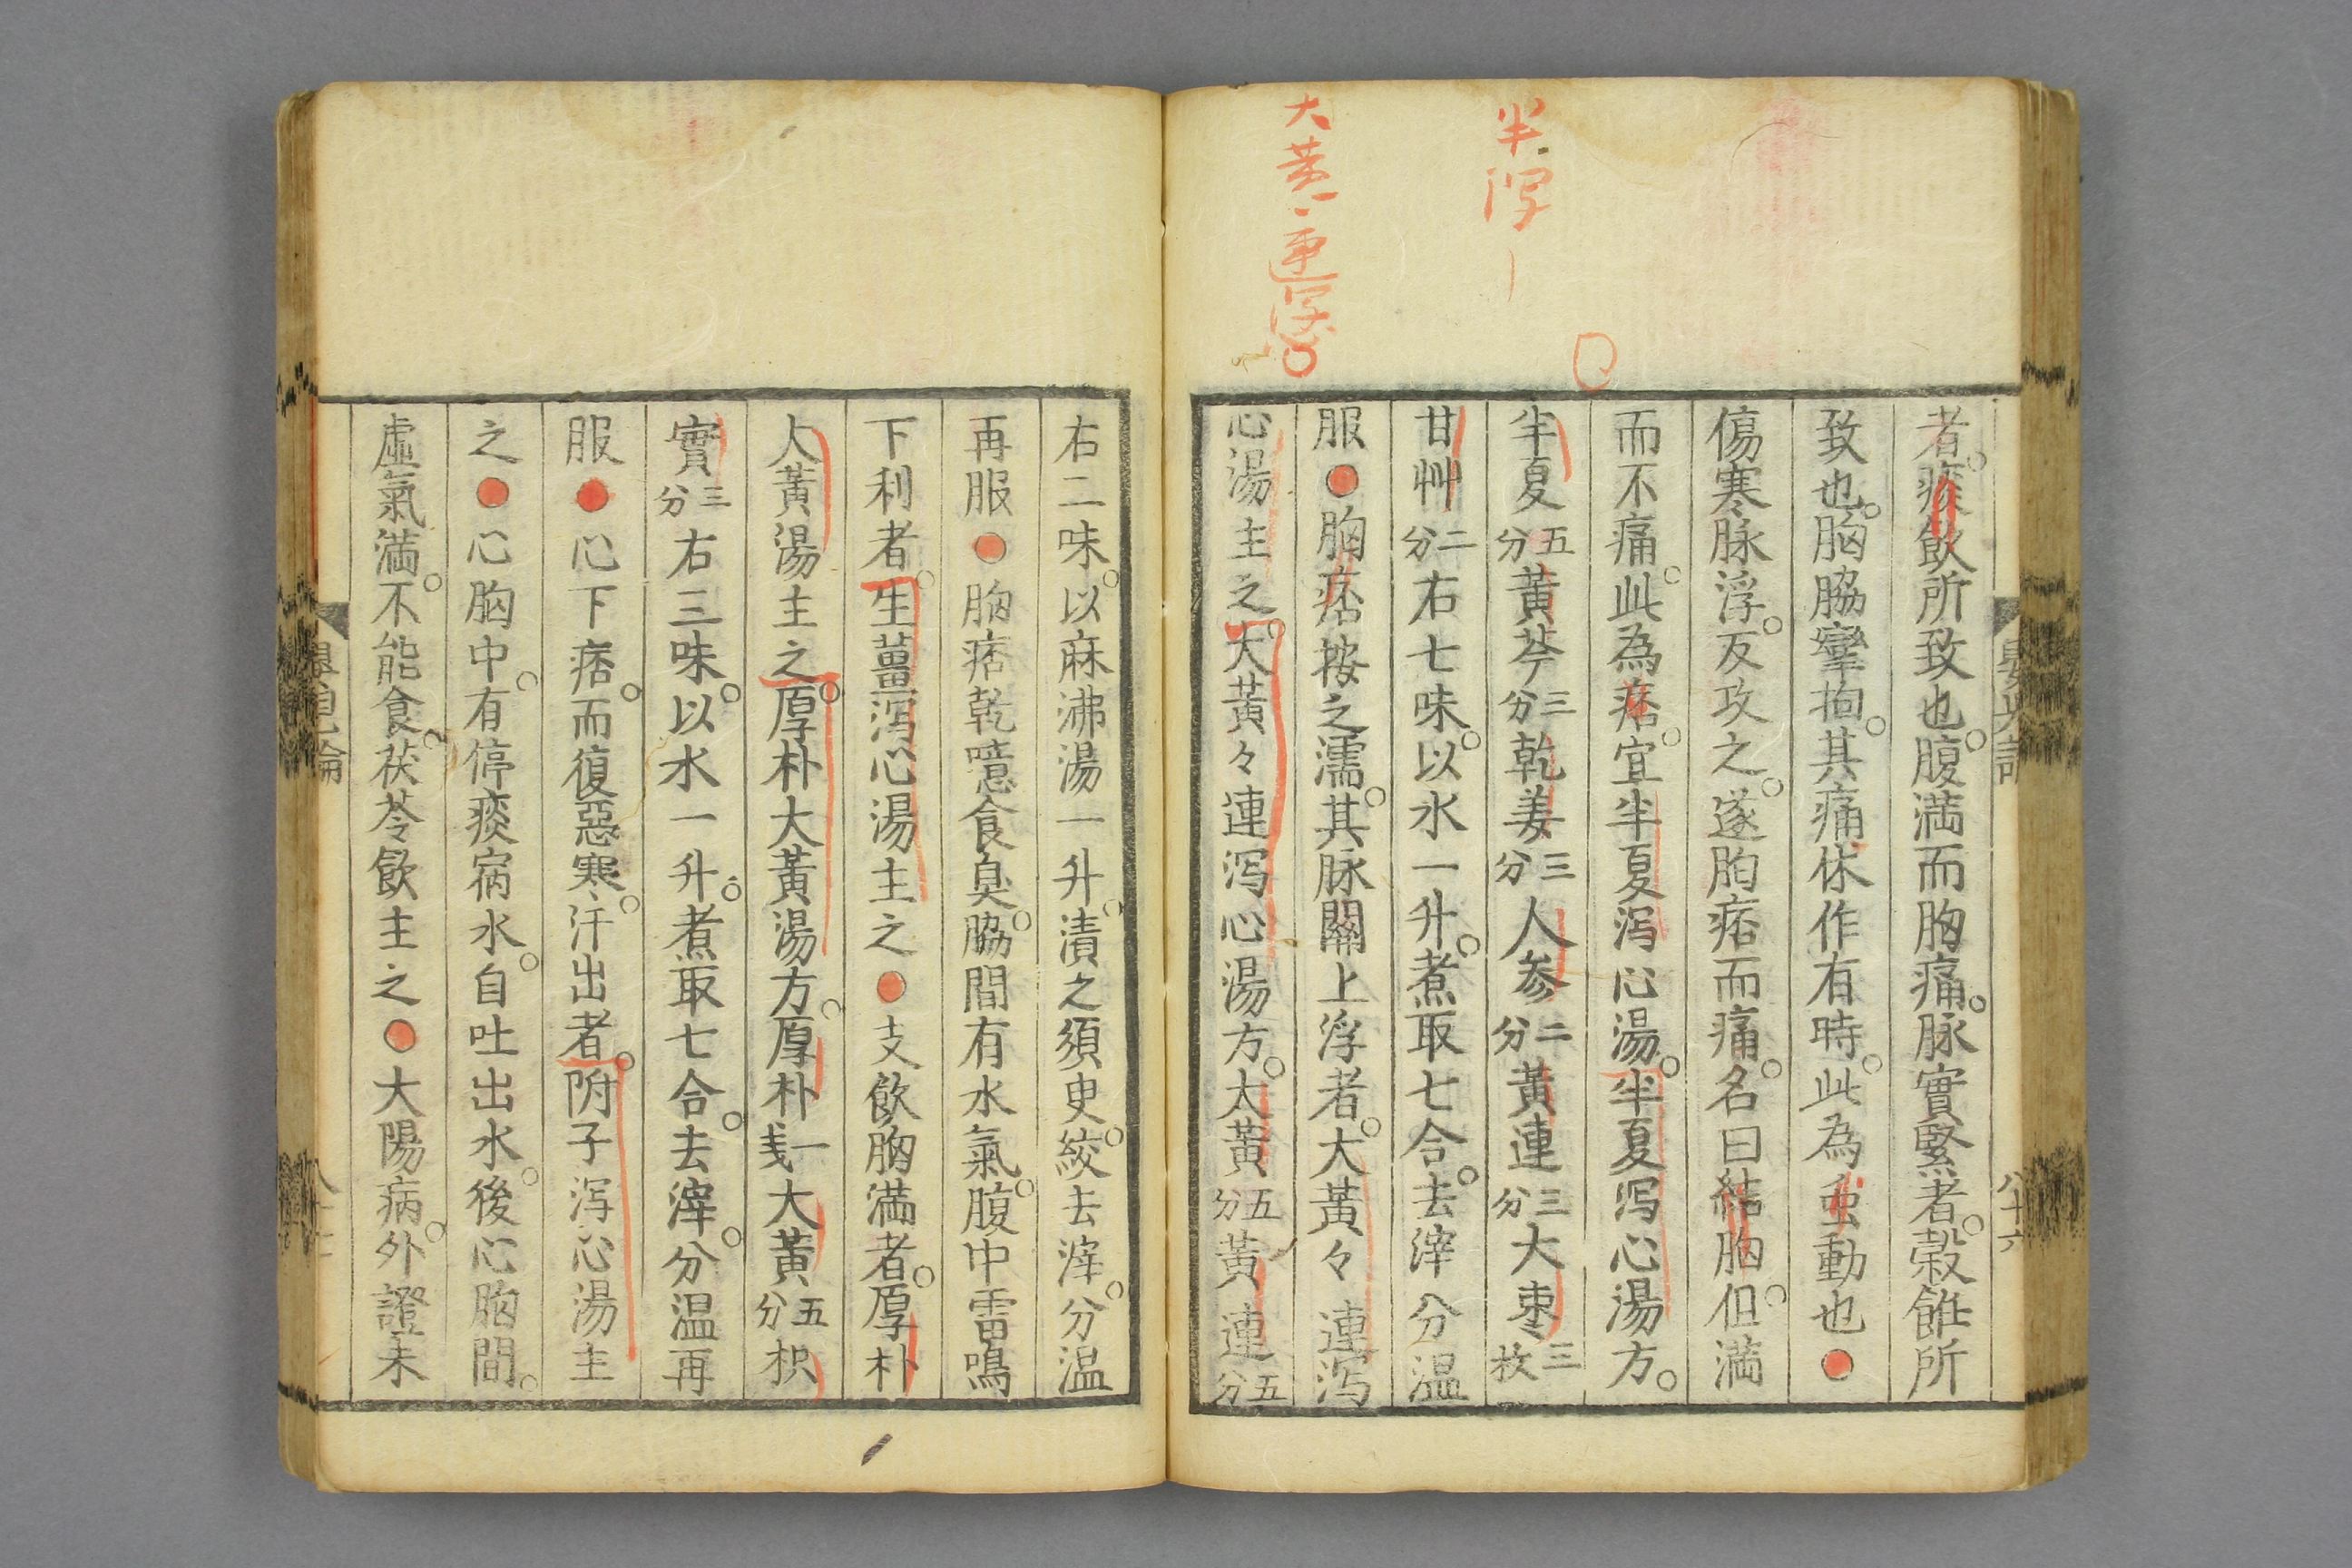 半瀉
大黄々連瀉
者痰飲所致也腹満而胸痛脉實緊者穀飪所
致也胸脇攣拘其痛休作有時此為䖝動也
傷寒脉浮反攻之遂胸痞而痛名曰結胸但満
而不痛此為痞宜半夏瀉心湯半夏瀉心湯方
半夏五分黄芩三分乾姜三分人参二分黄連三分大棗三枚
甘艸二分右七味以水一升煮取七合去滓分温
服●胸痞按之濡其脉關上浮者大黄々連瀉
心湯主之大黄々連瀉心湯方大黄五分黄連五分
八十六
右二味以麻沸湯一升漬之須叓絞去滓分温
再服●胸痞乾噫食臭脇間有水氣腹中雷鳴
下利者生薑瀉心湯主之●支飲胸満者厚朴
大黄湯主之厚朴大黄湯方厚朴一戔大黄五分枳
實三分右三味以水一升煮取七合去滓分温再
服●心下痞而復惡寒汗出者附子瀉心湯主
之●心胸中有停痰宿水自吐出水後心胸間
虚氣満不能食茯苓飲主之●大陽病外證未